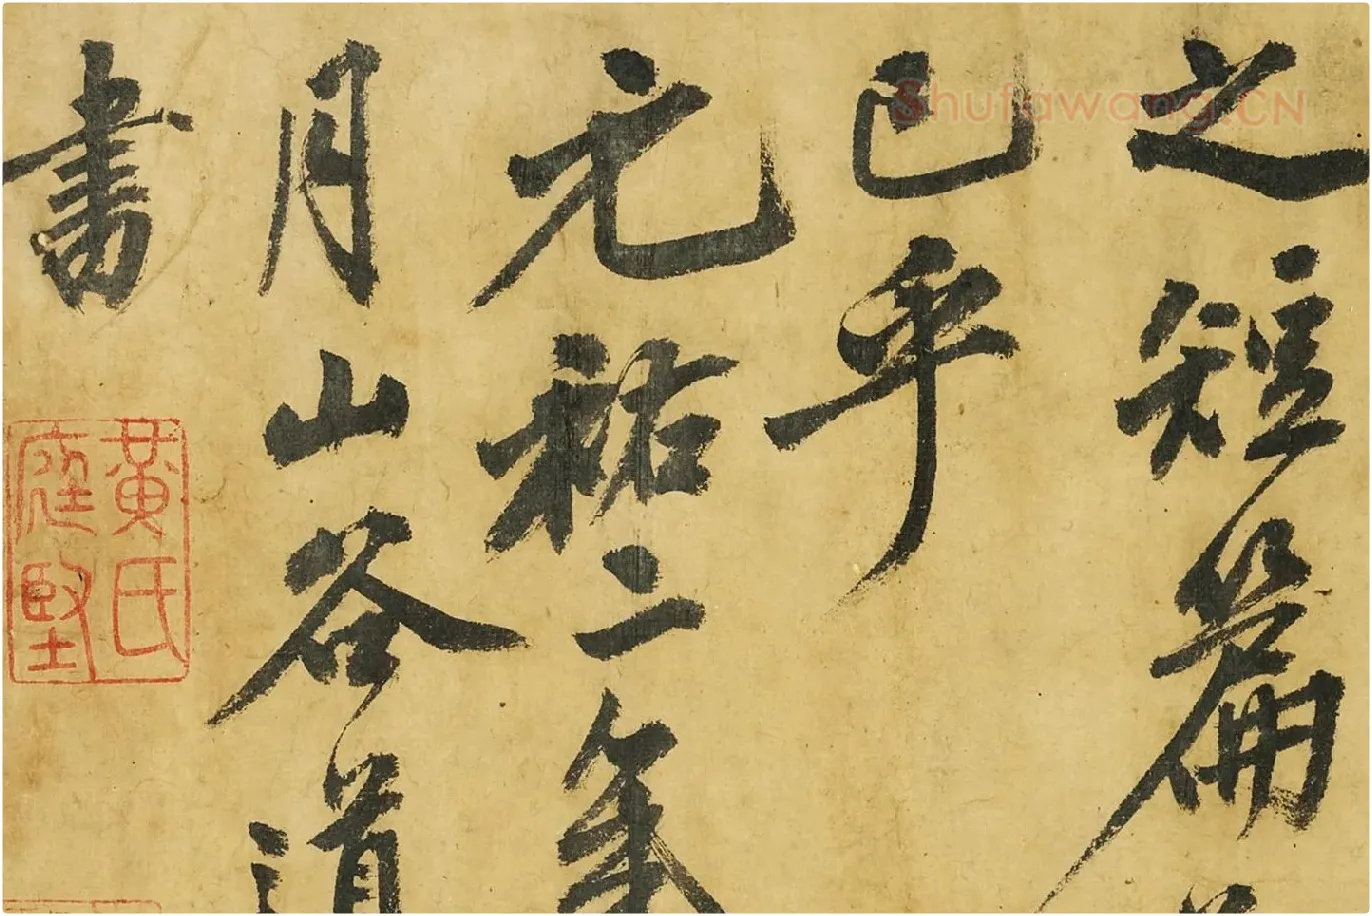 之短篇
已乎
元祐二年
月山谷道
書
黃氏
庭堅
Shufawang.CN